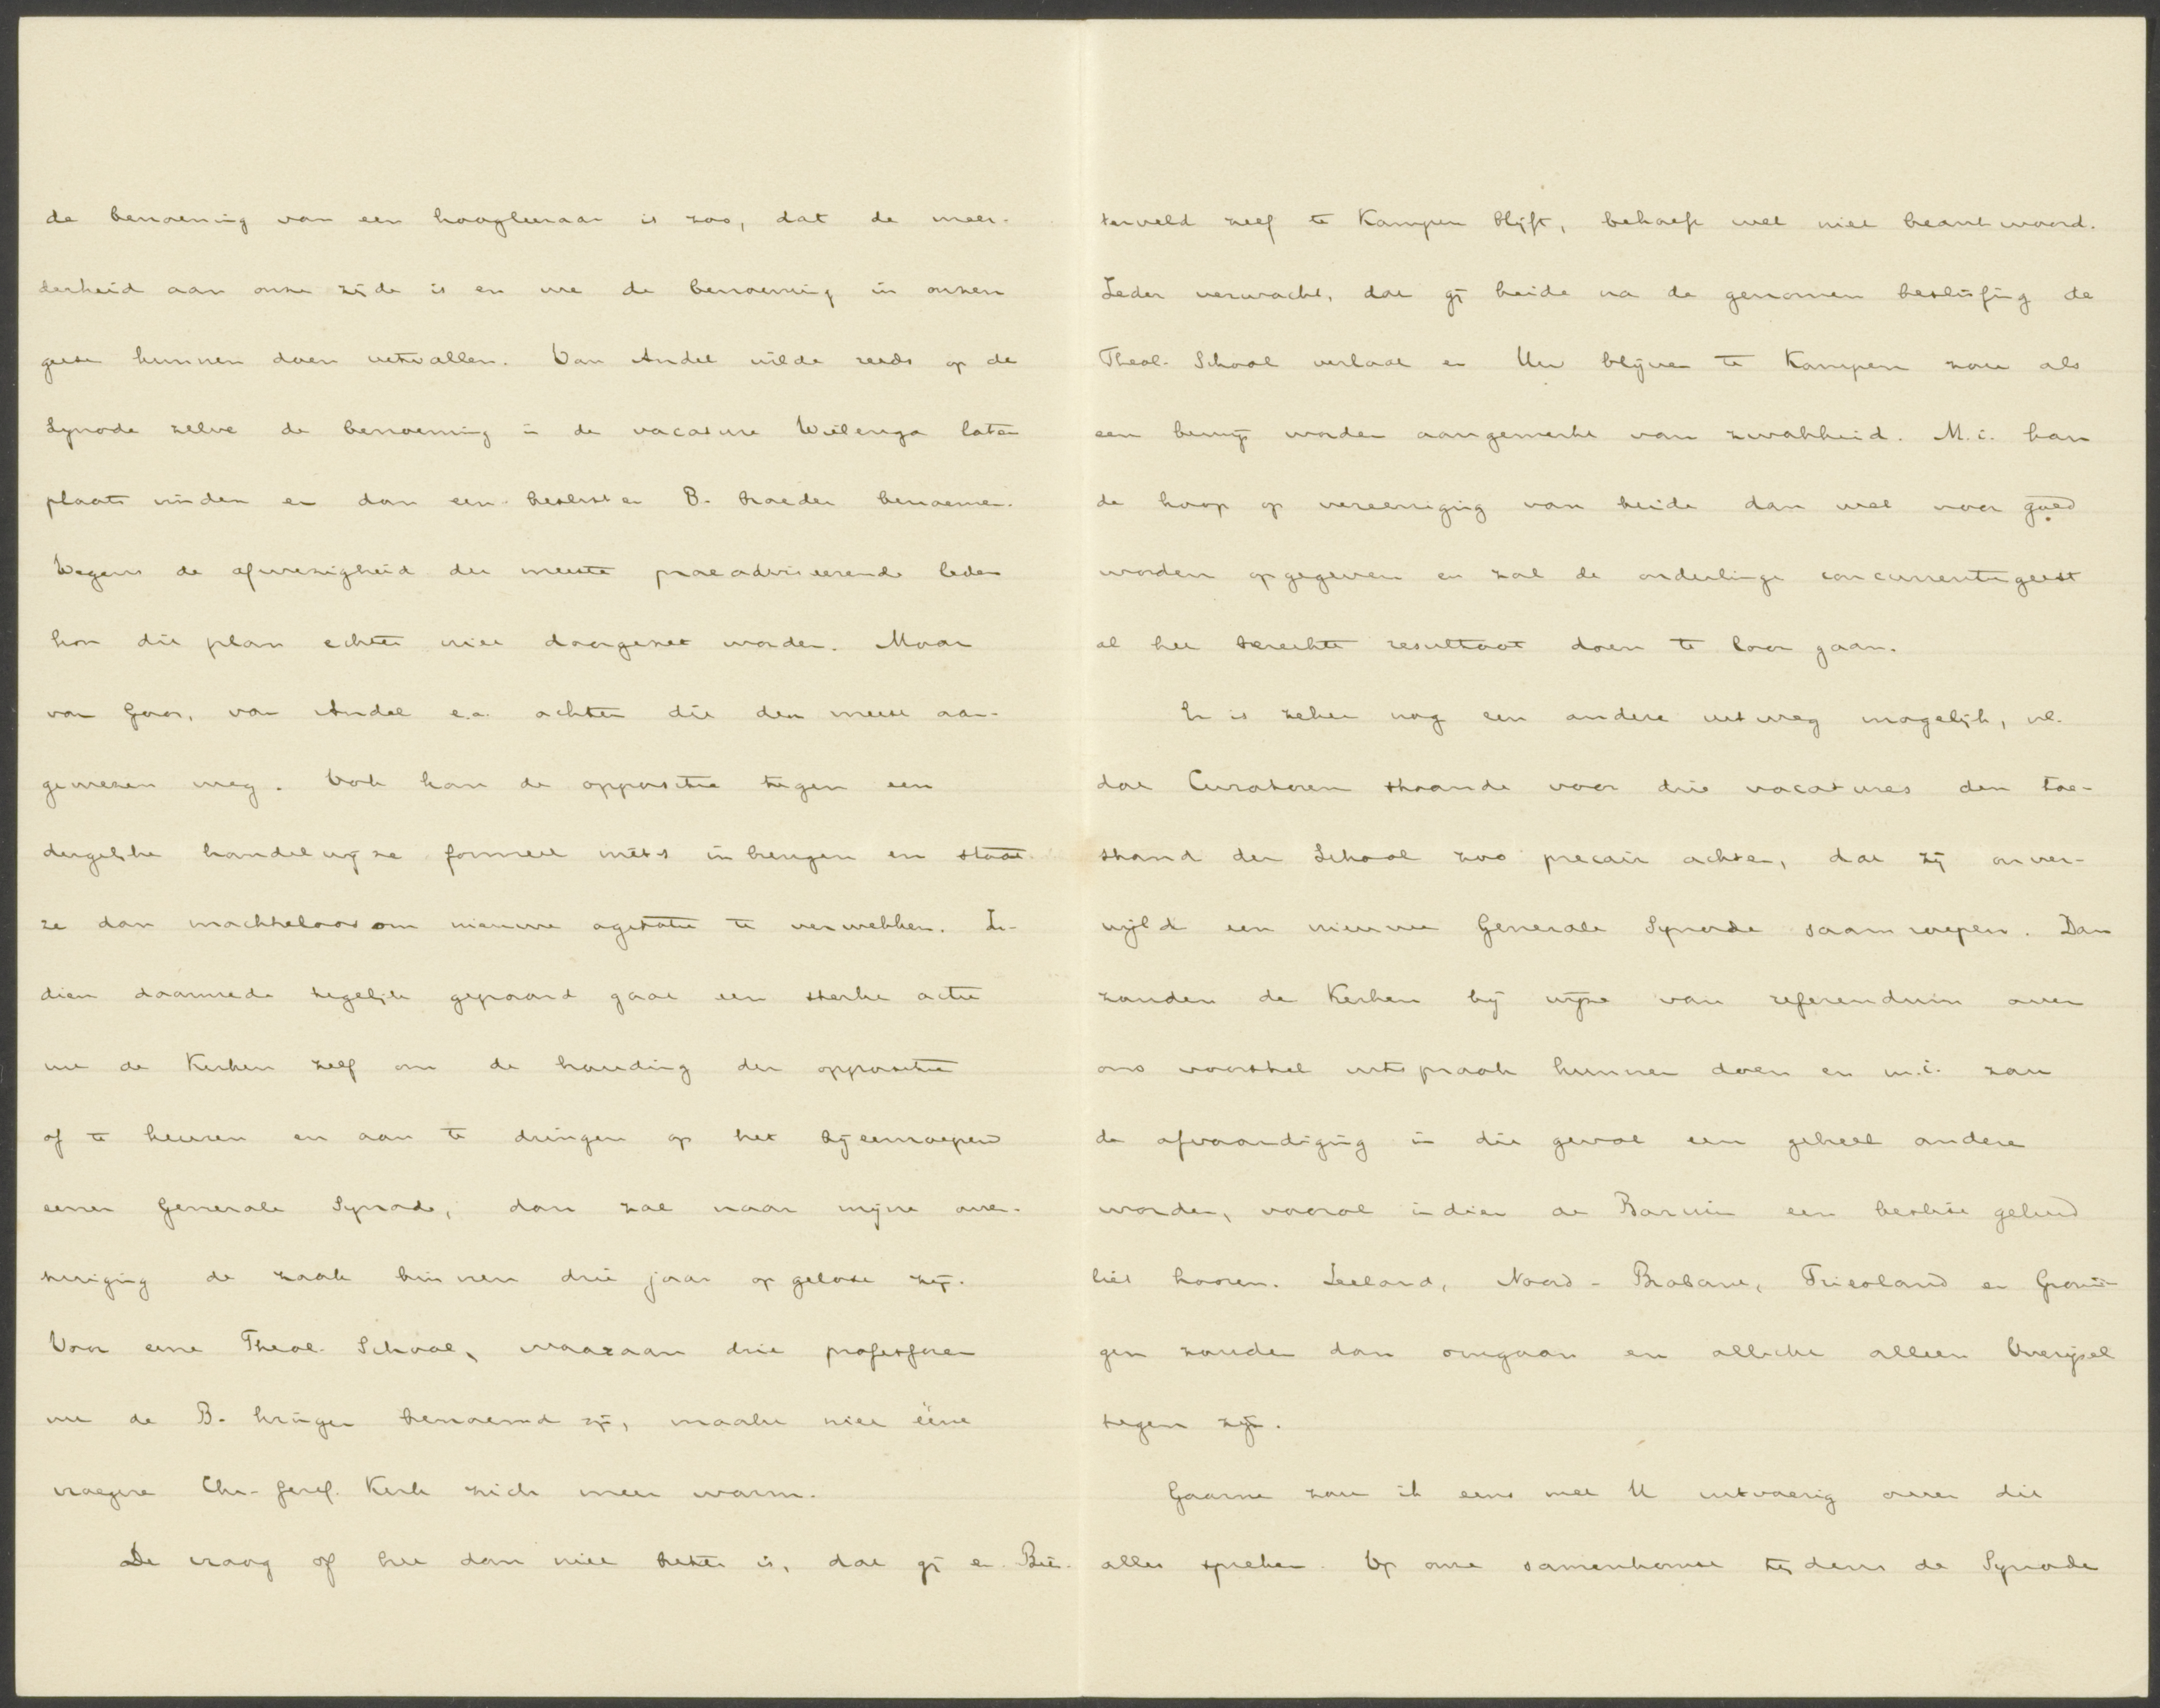 de benoeming van een hoogleeraar is zoo, dat de meer-
derheid aan onze zijde is en we de benoeming in onzen
geest kunnen doen uitvallen. Van Andel wilde reeds op de
Synode zelve de benoeming in de vacature Wielenga laten
plaats vinden en dan een beslisten B. broeder benoemen.
Wegens de afwezigheid der meeste praeadviseerende leden
kon dit plan echter niet doorgezet worden. Maar
van Goor, van Andel e.a. achten dit den meest aan-
gewezen weg. Ook kan de oppositie tegen een
dergelijke handelwijze formeel niets inbrengen en staat
ze dan machteloos om nieuwe agitatie te verwekken. In-
dien daarmede tegelijk gepaard gaat een sterke actie
uit de Kerken zelf om de houding der oppositie
af te keuren en aan te dringen op het bijeenroepen
eener Generale Synode, dan zal naar mijne over-
tuiging de zaak binnen drie jaar opgelost zijn.
Voor eene Theol. School, waaraan drie professoren
uit de B. kringen benoemd zijn, maakt niet ééne
vroegere Chr. Geref. Kerk zich meer warm.
De vraag of het dan niet beter is, dat gij en Bies-
terveld zelf te Kampen blijft, behoeft wel niet beantwoord.
Ieder verwacht, dat gij beide na de genomen beslissing de
Theol. School verlaat en Uw blijven te Kampen zou als
een bewijs worden aangemerkt van zwakheid. M.i. kan
de hoop op vereeniging van beide dan wel voor goed
worden opgegeven en zal de onderlinge concurrentiegeest
al het bereikte resultaat doen te loor gaan.
Er is zeker nog een andere uitweg mogelijk, nl.
dat Curatoren staande voor drie vacatures den toe-
stand der School zoo precair achten, dat zij onver-
wijld een nieuwe Generale Synode saamroepen. Dan
zouden de Kerken bij wijze van referendum over
ons voorstel uitspraak kunnen doen en m.i. zou
de afvaardiging in dit geval een geheel andere
worden, vooral indien de Bazuin een beslist geluid
liet hooren. Zeeland, Noord-Brabant, Friesland en Gronin-
gen zouden dan omgaan en allicht alleen Overijsel
tegen zijn.
Gaarne zou ik eens met U uitvoerig over dit
alles spreken. Op onze samenkomst tijdens de Synode